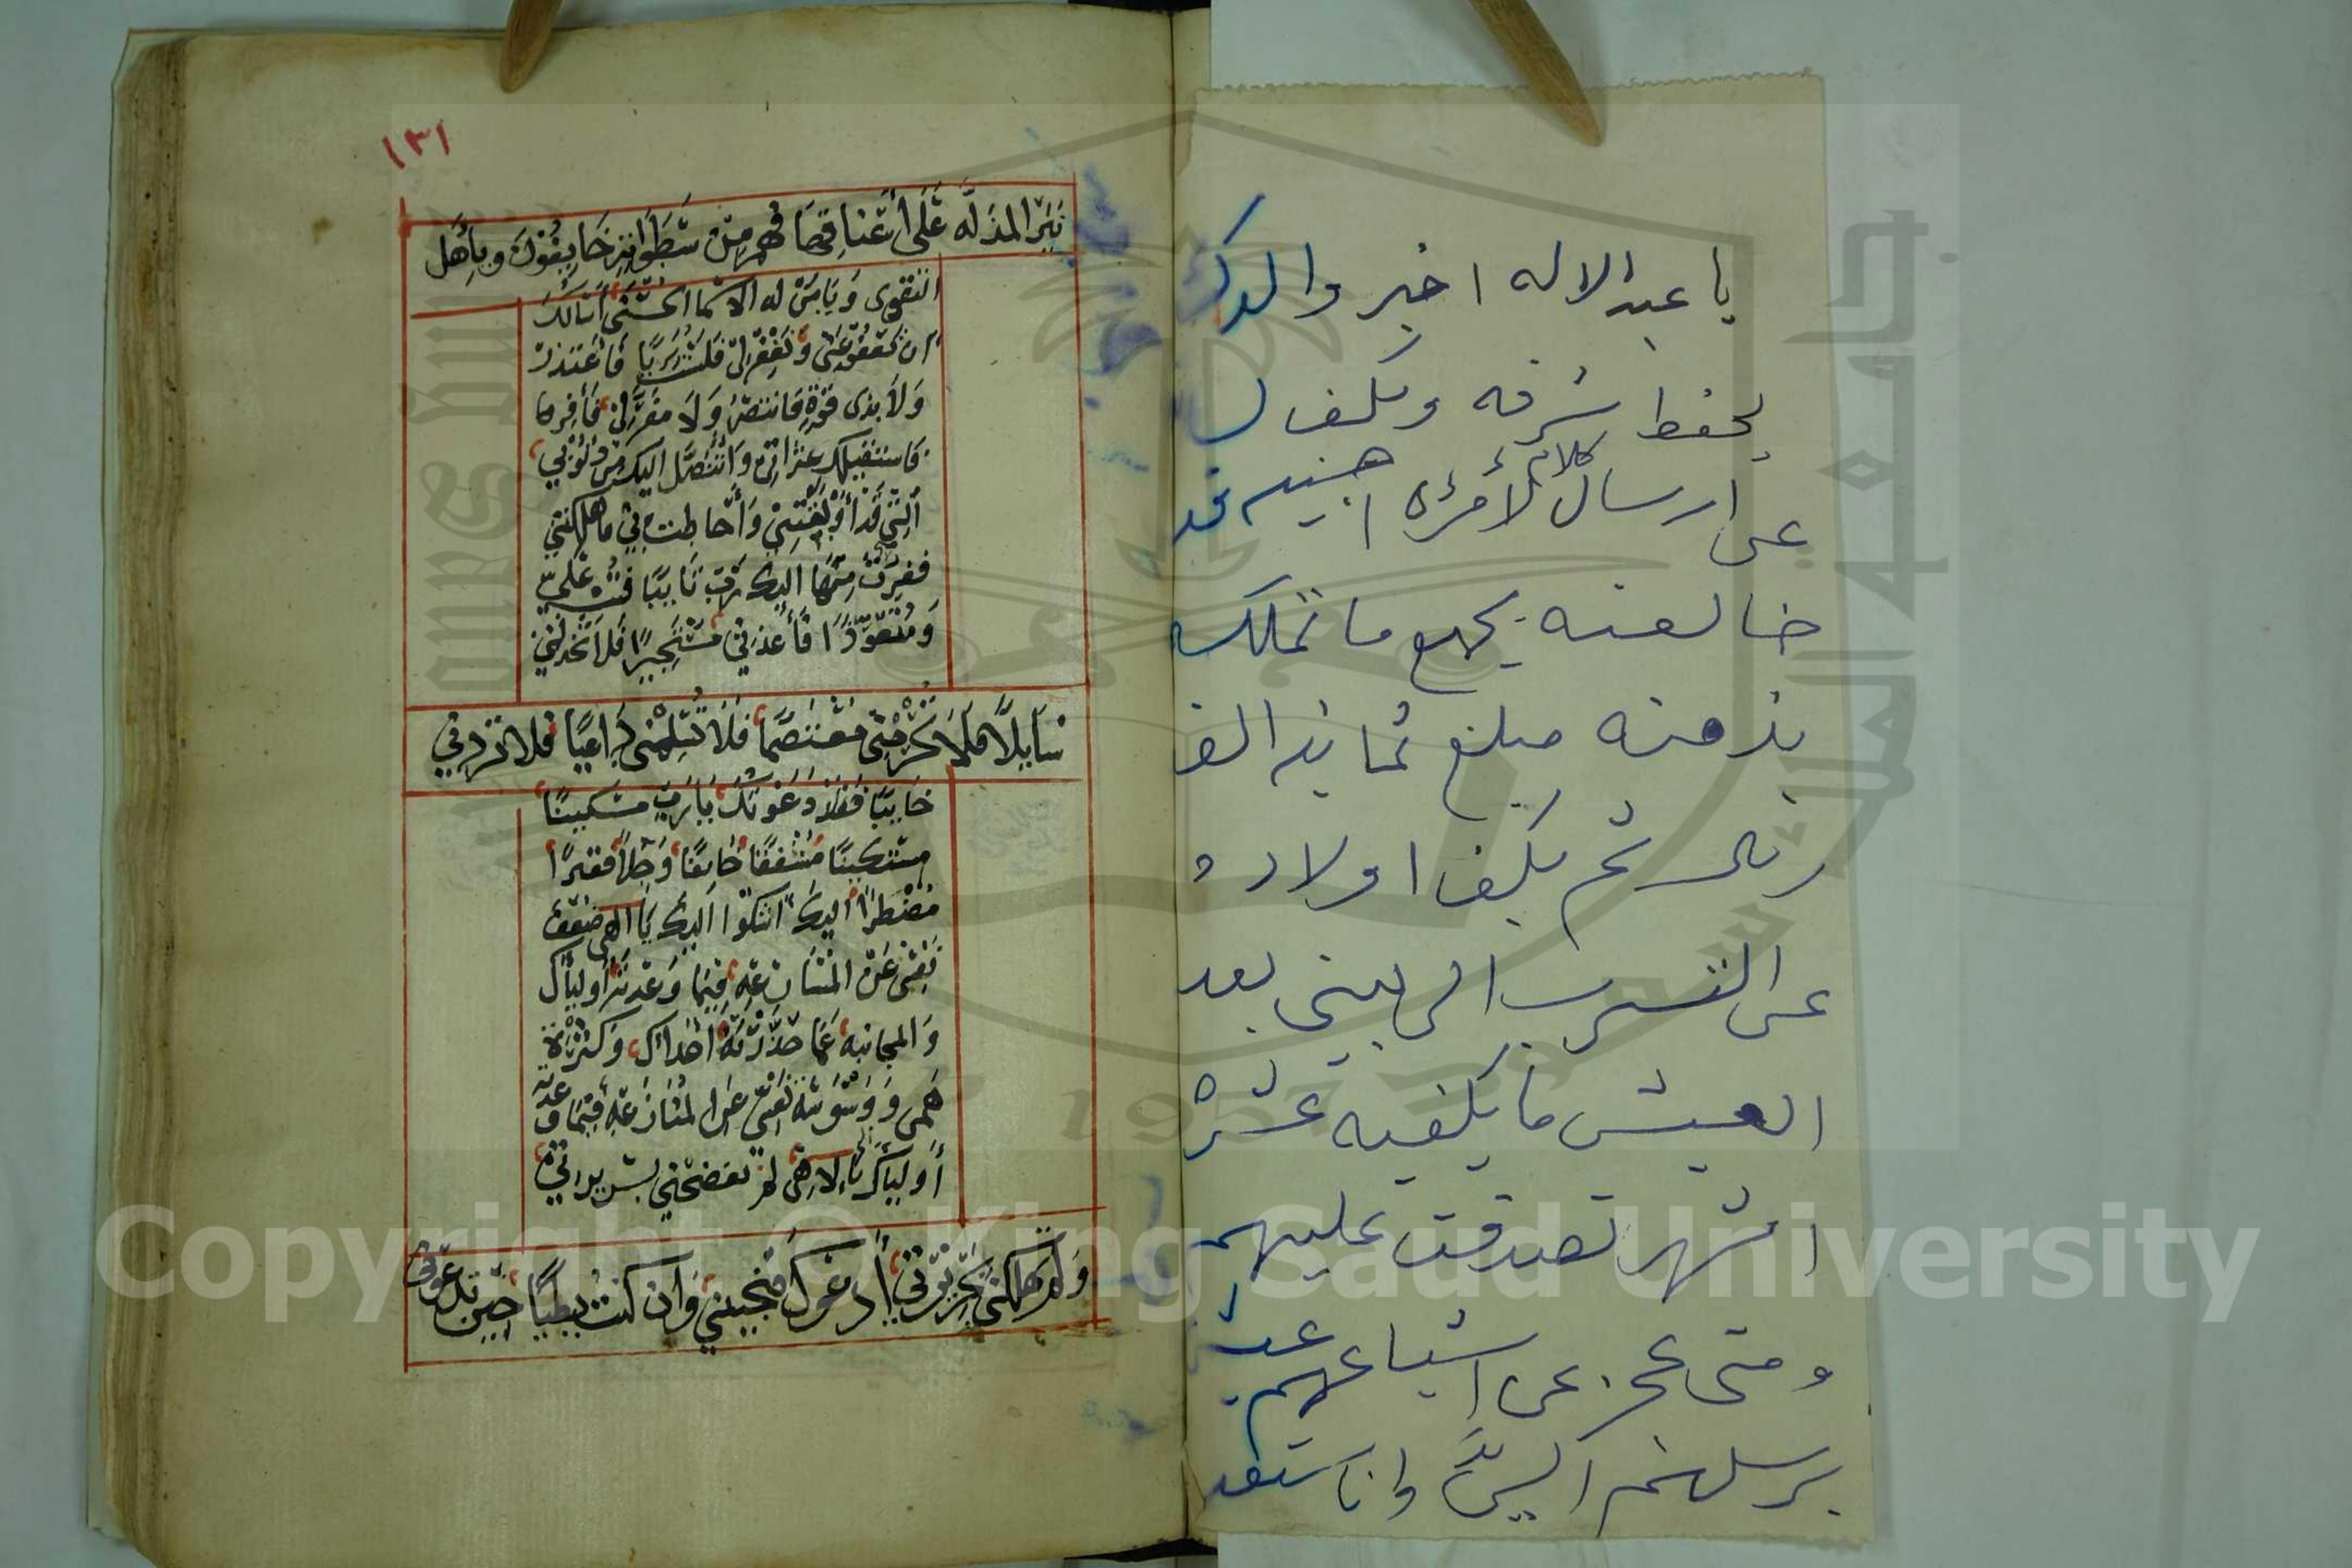 ١٣١
نير المذله على أعناقها فهم من سطواته خايفون وبأهل
التقوى ويا من له الاسما الحسنى أسالك
ان تعفو عني وتغفر لي فلست بريا فأعتذر
ولا بذى قوة فانتصر ولا مفر لي فأفر ما
فاستقيلك عثراتي وأتنصل اليك من ذنوبي
التي قد أوبقتني وأحاطت بي فاهلكتني
ففررت منها اليك رب تايبا فتب علي
ومتعوذا فأعذني مستجيرا فلا تخذلني
سايلا فلا تحرمني معتصما فلا تسلمني داعيا فلا تردني
خايبا فقد دعوتك يا رب مسكينا
مستكينا مشفقا خايفا وجلا فقيرا
مضطرا اليك اشكوا اليك يا الهى ضعف
نفسى عن المسارعه فيما وعدته أولياك
والمجانبه عما حذرته اعداك وكثرة
همى ووسوسة نفسي عن المسارعه فيما وعدته
أولياك يا إلاهى لم تفضحني بسريرتي
ولم تهلكني بجريرتي أدعوك فتجيبني وان كنت بطيا حين تدعوني
يا عبد الاله اخبر والدك
يحفظ شرفه ويكف
عن ارسال كلام لأمرأه اجنبيه قد
خالعته بجميع ما تملك
بذمته مبلغ ثمانية الف
ريال ثم يكف اولاده
عن التسرب الى بيتي بعد
العيش ما يكفيه عشرة
اشهر تصدقت عليهم
ومتى عجز عن اشباعهم
يرسلهم الي وانا